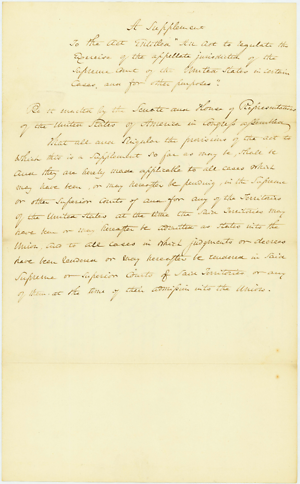 A Supplement
To the Act Entitled "An Act to regulate the
Exercise of the appellate jurisdiction of the
Supreme Court of the United States in certain
Cases, and for other purposes".
Be it enacted by the Senate and House of Representatives
of the United States of America in Congress assembled
That all and singular the provisions of the act to
which this is a supplement so far as may be, shall be
and they are hereby made applicable to all cases which
may have been, or may hereafter be pending, in the Supreme
or other Superior Courts of and for any of the Territories
of the United States at the time the said Territories may
have been or may hereafter be admitted as states into the
Union and to all cases in which judgments or decrees
have been rendered or may hereafter be rendered in said
Supreme or Superior Courts of said Territories or any
of them at the time of their admission into the Union.